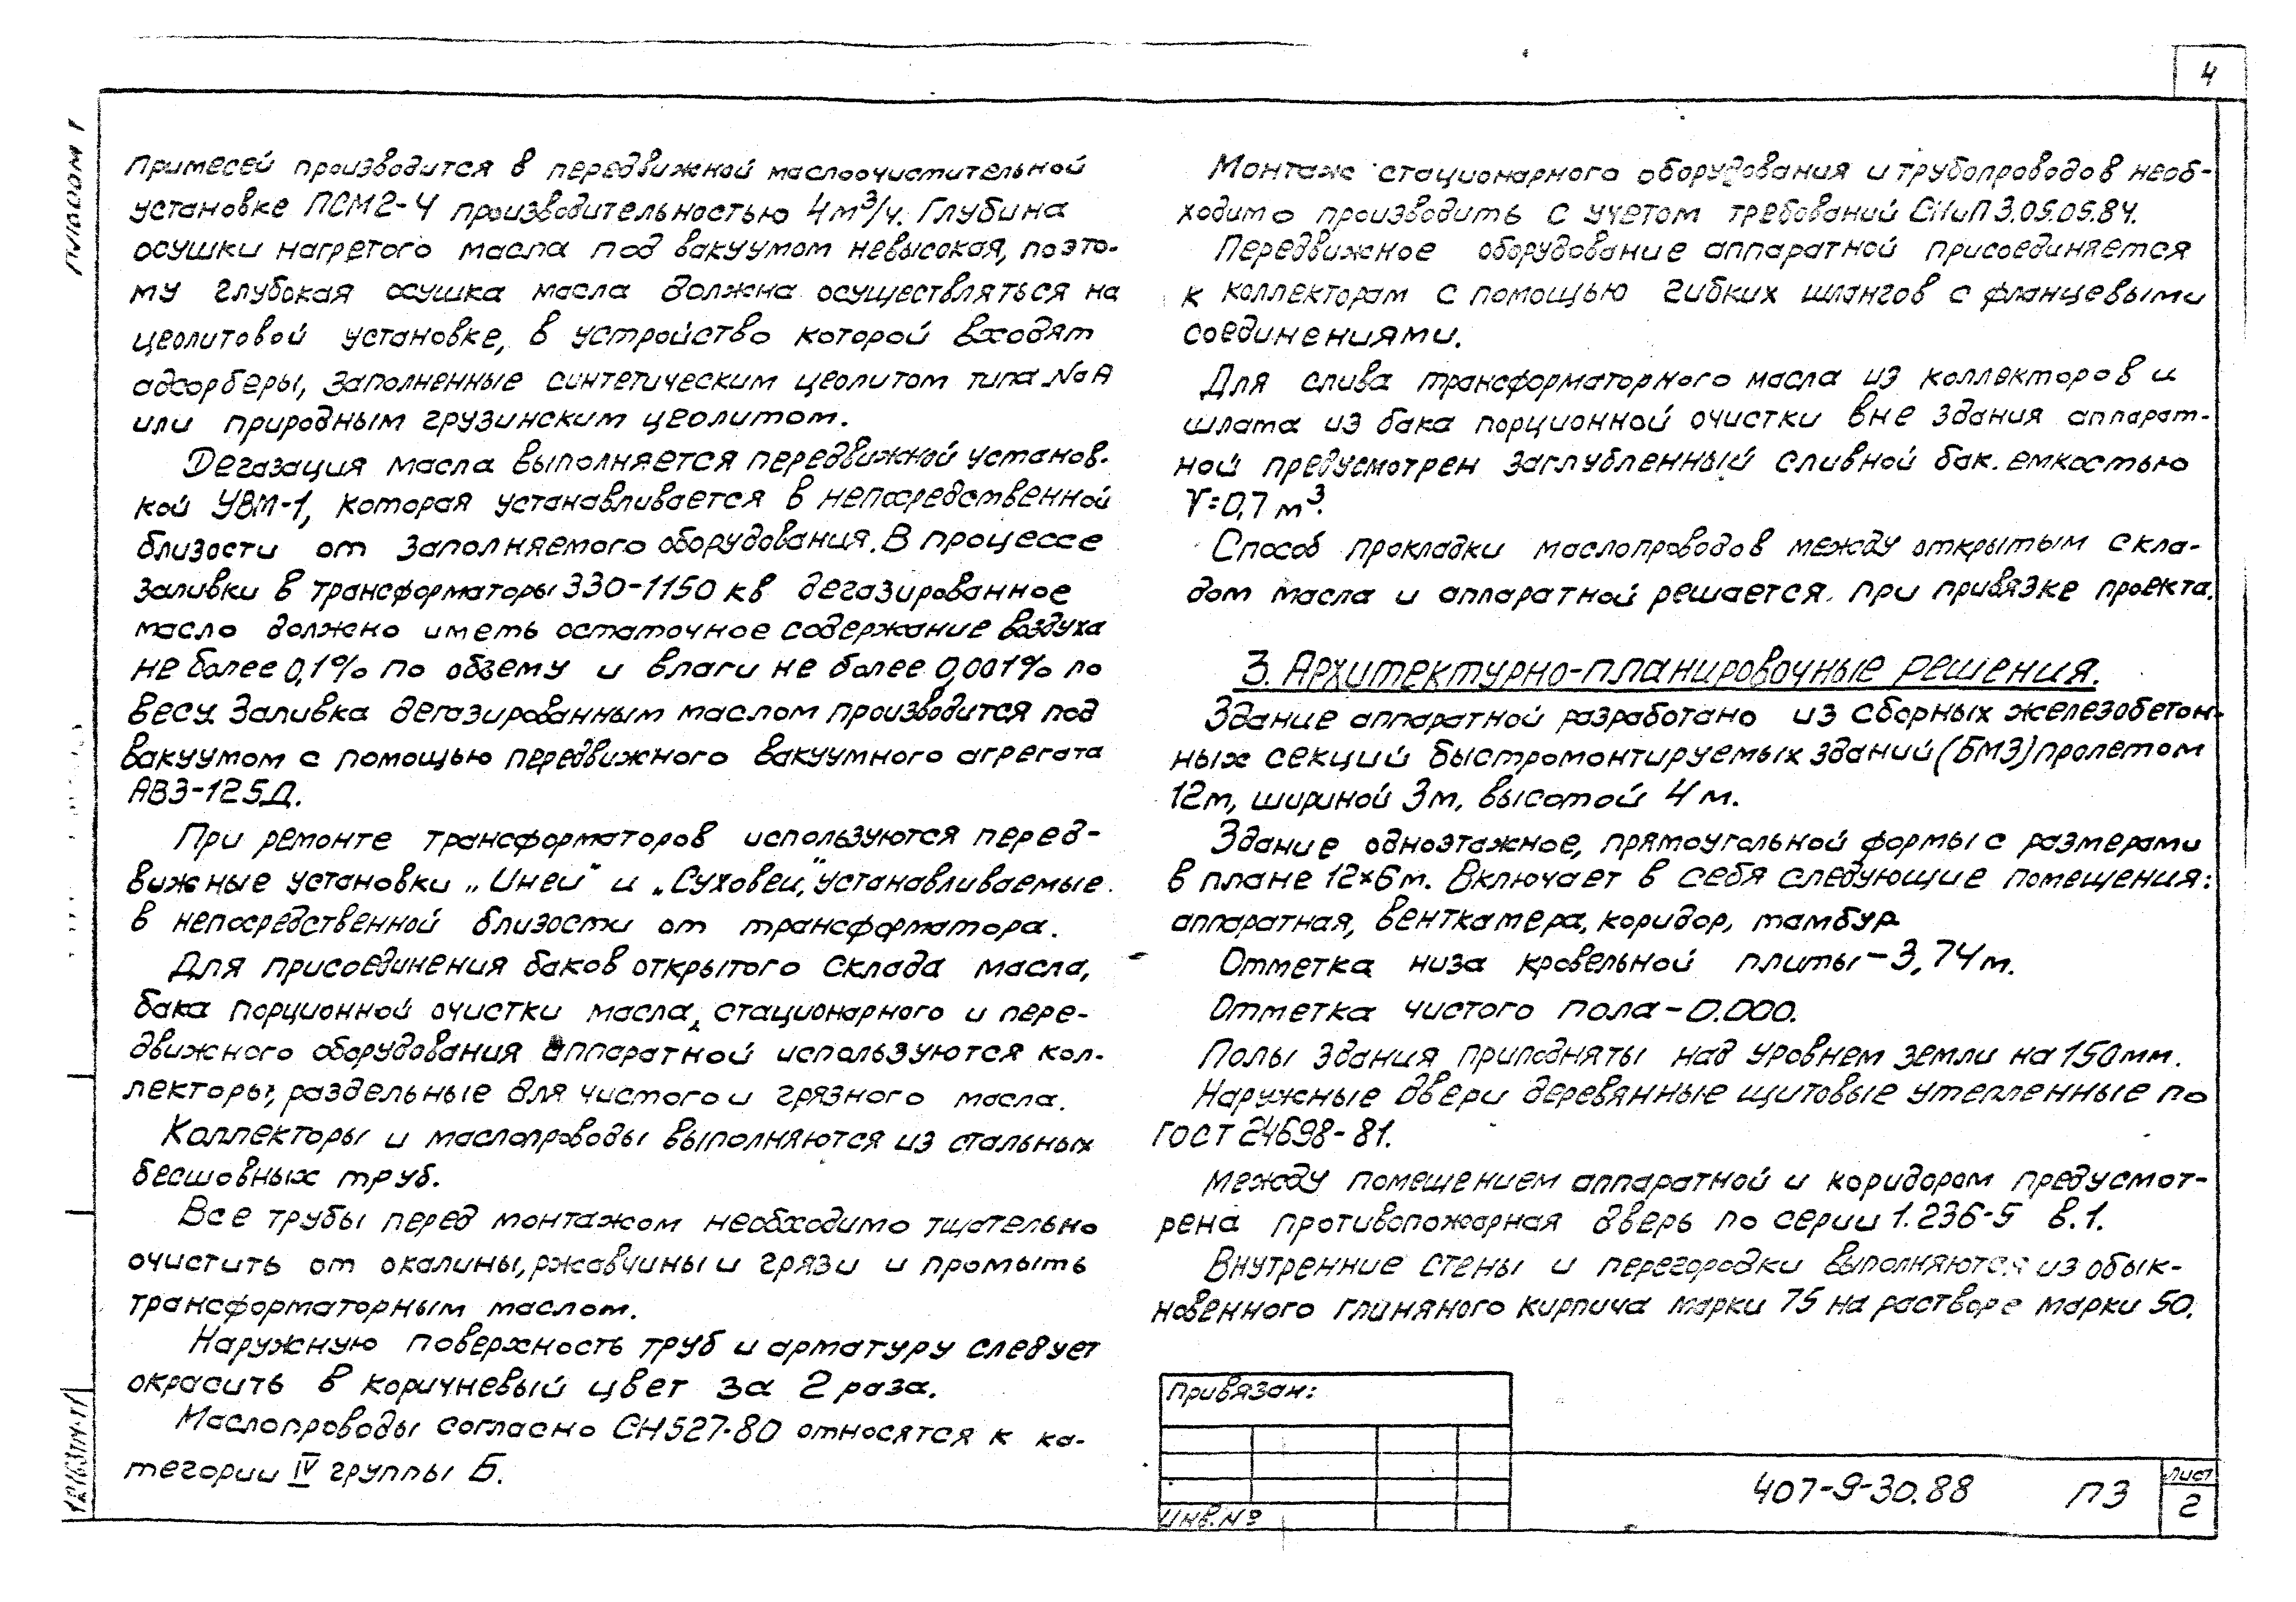 4
Альбом I
примесей производится в передвижной маслоочистительной
установке ПСМ2-4 производительностью 4м³/ч. Глубина
осушки нагретого масла под вакуумом невысокая, поэто-
му глубокая осушка масла должна осуществляться на
цеолитовой установке, в устройство которой входят
адсорберы, заполненные синтетическим цеолитом типа NaA
или природным грузинским цеолитом.
Дегазация масла выполняется передвижной установ-
кой УВМ-1, которая устанавливается в непосредственной
близости от заполняемого оборудования. В процессе
заливки в трансформаторы 330-1150 кв дегазированное
масло должно иметь остаточное содержание воздуха
не более 0,1% по объему и влаги не более 0,001% по
весу. Заливка дегазированным маслом производится под
вакуумом с помощью передвижного вакуумного агрегата
АВЗ-125Д.
При ремонте трансформаторов используются перед-
вижные установки „Иней" и „Суховей," устанавливаемые
в непосредственной близости от трансформатора.
Для присоединения баков открытого склада масла,
бака порционной очистки масла, стационарного и пере-
движного оборудования аппаратной используются кол-
лекторы, раздельные для чистого и грязного масла.
Коллекторы и маслопроводы выполняются из стальных
бесшовных труб.
Все трубы перед монтажом необходимо тщательно
очистить от окалины, ржавчины и грязи и промыть
трансформаторным маслом.
Наружную поверхность труб и арматуру следует
окрасить в коричневый цвет за 2 раза.
Маслопроводы согласно СН527-80 относятся к ка-
тегории IV группы Б.
Монтаж стационарного оборудования и трубопроводов необ-
ходимо производить с учетом требований СНиП 3.05.05.84.
Передвижное оборудование аппаратной присоединяется
к коллекторам с помощью гибких шлангов с фланцевыми
соединениями.
Для слива трансформаторного масла из коллекторов и
шлама из бака порционной очистки вне здания аппарат-
ной предусмотрен заглубленный сливной бак. емкостью
V=0,7 м³.
Способ прокладки маслопроводов между открытым скла-
дом масла и аппаратной решается при привязке проекта.
3. Архитектурно-планировочные решения.
Здание аппаратной разработано из сборных железобетон-
ных секций быстромонтируемых зданий (БМЗ) пролетом
12м, шириной 3м, высотой 4 м.
Здание одноэтажное, прямоугольной формы с размерами
в плане 12×6 м. Включает в себя следующие помещения:
аппаратная, венткамера, коридор, тамбур
Отметка низа кровельной плиты - 3,74 м.
Отметка чистого пола - 0.000.
Полы здания приподняты над уровнем земли на 150мм.
Наружные двери деревянные щитовые утепленные по
ГОСТ 24698-81.
Между помещением аппаратной и коридором предусмот-
рена противопожарная дверь по серии 1.236-5 в.1.
Внутренние стены и перегородки выполняются из обык-
новенного глиняного кирпича марки 75 на растворе марки 50.
Привязан:
Инв.№
407-9-30.88 ПЗ
Лист
2